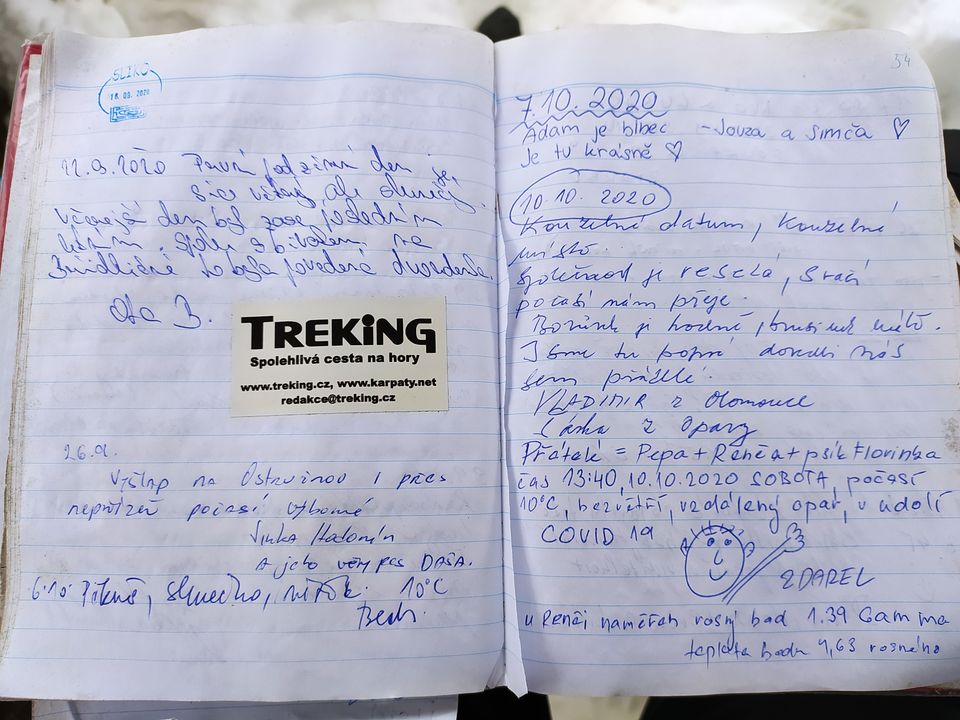 SLIKO
18.09.2020
22.9.2020 První podzimní den je
sice vlahý, ale
Včerejší den byl zase posledním
letním. Spolu s bivakem na
to byla povedená dvoudenka.
Ota B.
TREKiNG
Spolehlivá cesta na hory
www.treking.cz, www.karpaty.net
redakce@treking.cz
26.9.
Výšlap na Ostružnou i přes
nepřízeň počasí výborné
A jeho věrný pes DAŠA.
6.10. Pěkně, slunečno, větřík. 10°C
54
7.10.2020
Adam je blbec - Jouza a Simča ♡
Je tu krásně ♡
10.10.2020
Kouzelné datum, kouzelné
místo.
Společnost je veselá, svačí
počasí nám přeje.
Jsme tu poprvé dovedli nás
sem přátelé.
VLADIMIR z Olomouce
Láska z Opavy
Přátelé = Pepa + Renča + psík Florinka
čas 13:40, 10.10.2020 SOBOTA, počasí
10°C, bezvětří, vzdálený opar, v údolí
COVID 19
ZDAREL
u Renči naměřen rosný bod 1.39 Gamma
teplota bodu 4,63 rosného